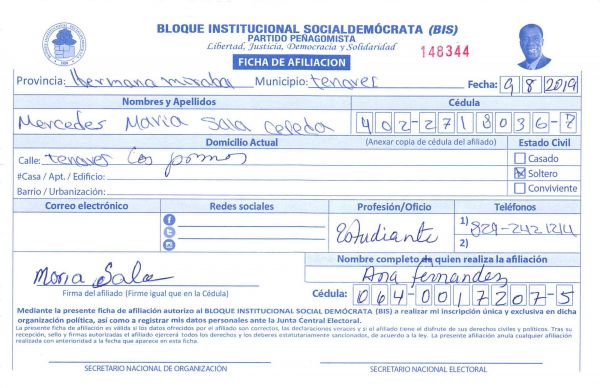 BLOQUE INSTITUCIONAL SOCIALDEMÓCRATA (BIS)
PARTIDO PEÑAGOMISTA
Libertad, Justicia, Democracia y Solidaridad
148344
FICHA DE AFILIACION
Provincia: Hermana mirabal Municipio: tenares Fecha: 9 8 2019
Nombres y Apellidos Cédula
Mercedes Maria Sala Celeda 402-2718036-7
Domicilio Actual (Anexar copia de cédula del afiliado) Estado Civil
Calle: tenares Los pomos Casado
#Casa / Apt. / Edificio: Soltero
Barrio / Urbanización: Conviviente
Correo electrónico Redes sociales Profesión/Oficio Teléfonos
Estudiante 1) 829-242 1214
2)
Nombre completo de quien realiza la afiliación
Maria Sala Ana Fernandez
Firma del afiliado (Firme igual que en la Cédula) Cédula: 064-0017207-5
Mediante la presente ficha de afiliación autorizo al BLOQUE INSTITUCIONAL SOCIAL DEMÓCRATA (BIS) a realizar mi inscripción única y exclusiva en dicha
organización política, así como a registrar mis datos personales ante la Junta Central Electoral.
La presente ficha de afiliación es válida si los datos ofrecidos por el afiliado son correctos, las declaraciones veraces y si el afiliado tiene el disfrute de sus derechos civiles y políticos. Tras su
recepción, sello y firmas autorizadas el afiliado ejercerá todos los derechos y los deberes estatutariamente sancionados, de acuerdo a la ley. La presente afiliación anula cualquier afiliación
realizada con anterioridad a la fecha que aparece en esta ficha.
SECRETARIO NACIONAL DE ORGANIZACIÓN SECRETARIO NACIONAL ELECTORAL